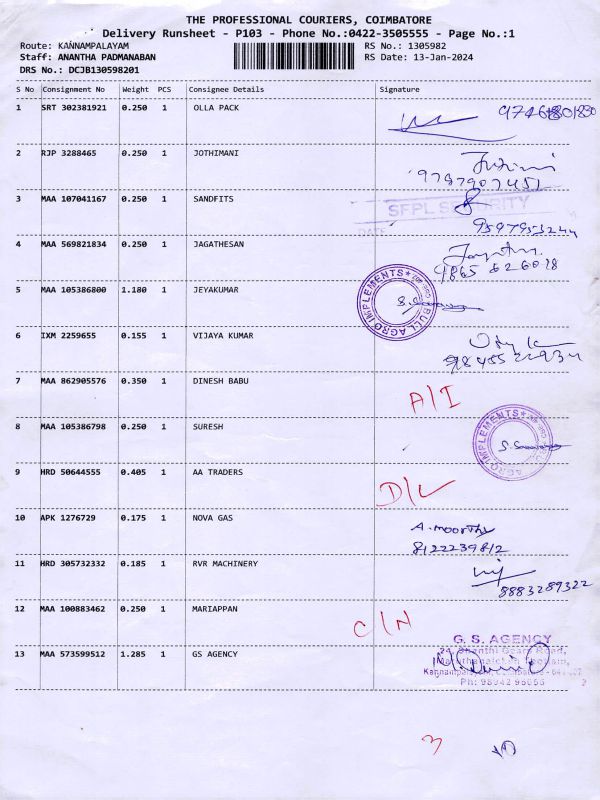 THE PROFESSIONAL COURIERS, COIMBATORE
Delivery Runsheet - P103 - Phone No.:0422-3505555 - Page No.:1
Route: KANNAMPALAYAM RS No.: 1305982
Staff: ANANTHA PADMANABAN RS Date: 13-Jan-2024
DRS No.: DCJB130598201
S No Consignment No Weight PCS Consignee Details Signature
1 SRT 302381921 0.250 1 OLLA PACK
2 RJP 3288465 0.250 1 JOTHIMANI
9787907451
3 MAA 107041167 0.250 1 SANDFITS
SFPL SECURITY
DATE 9597953244
4 MAA 569821834 0.250 1 JAGATHESAN
9865626028
5 MAA 105386800 1.180 1 JEYAKUMAR
BULL AGRO IMPLEMENTS
6 IXM 2259655 0.155 1 VIJAYA KUMAR
7 MAA 862905576 0.350 1 DINESH BABU
A/I
8 MAA 105386798 0.250 1 SURESH
AGRO IMPLEMENTS
9 HRD 50644555 0.405 1 AA TRADERS
D/L
10 APK 1276729 0.175 1 NOVA GAS
A. MOORTHY
8122239812
11 HRD 305732332 0.185 1 RVR MACHINERY
8883289322
12 MAA 100883462 0.250 1 MARIAPPAN
C/N
13 MAA 573599512 1.285 1 GS AGENCY
G. S. AGENCY
24, Shanthi Geary Road,
Kannampalayam, Coimbatore
3